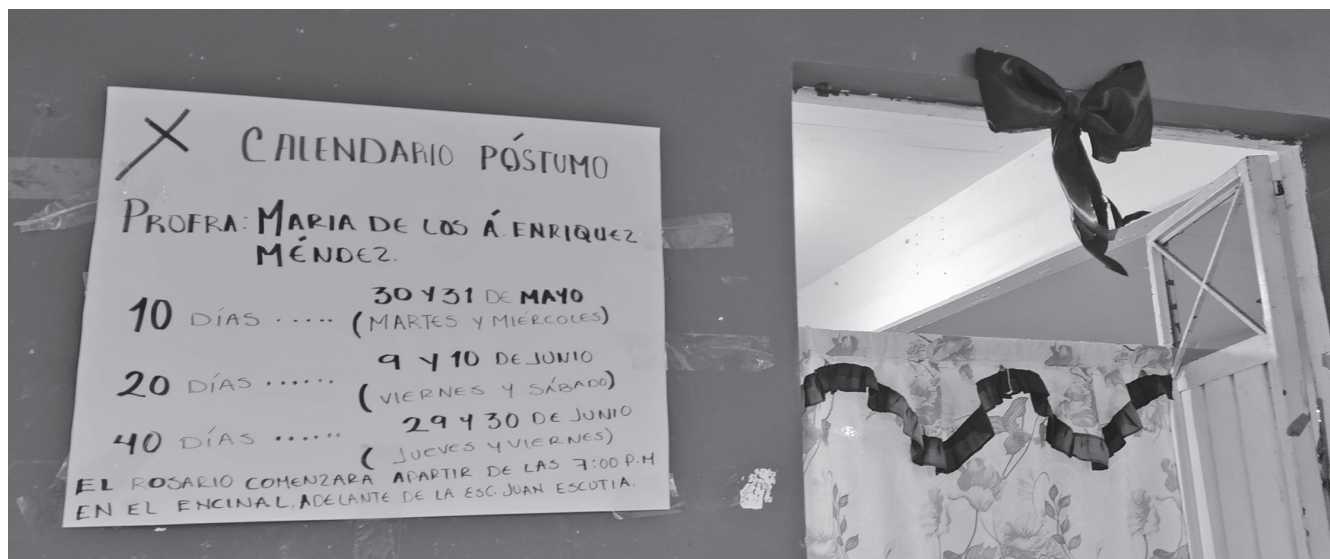 CALENDARIO PÓSTUMO
PROFRA: MARIA DE LOS Á. ENRIQUEZ
MÉNDEZ.
10 DÍAS ..... 30 Y 31 DE MAYO
(MARTES Y MIÉRCOLES)
20 DÍAS ...... 9 Y 10 DE JUNIO
(VIERNES Y SÁBADO)
40 DÍAS ...... 29 Y 30 DE JUNIO
(JUEVES Y VIERNES)
EL ROSARIO COMENZARA APARTIR DE LAS 7:00 P.M
EN EL ENCINAL, ADELANTE DE LA ESC. JUAN ESCOTIA.